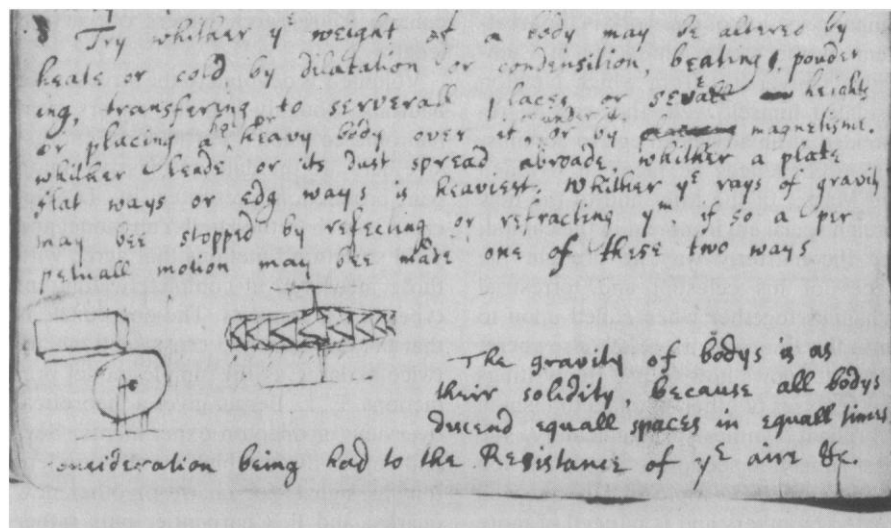 Try whither yᵉ weight of a body may be altered by
heate or cold by dilatation or condensition, beating, powder
ing, transfering to serverall places or severall heights
or placing a hot or heavy body over it or under it, or by magnetisme.
whither leade or its dust spread abroade, whither a plate
flat ways or edg ways is heaviest. Whither yᵉ rays of gravity
may bee stopped by reflecting or refracting yᵐ, if so a per
petuall motion may be made one of these two ways
The gravity of bodys is as
their solidity, because all bodys
descend equall spaces in equall times
consideration being had to the Resistance of yᵉ aire &c.